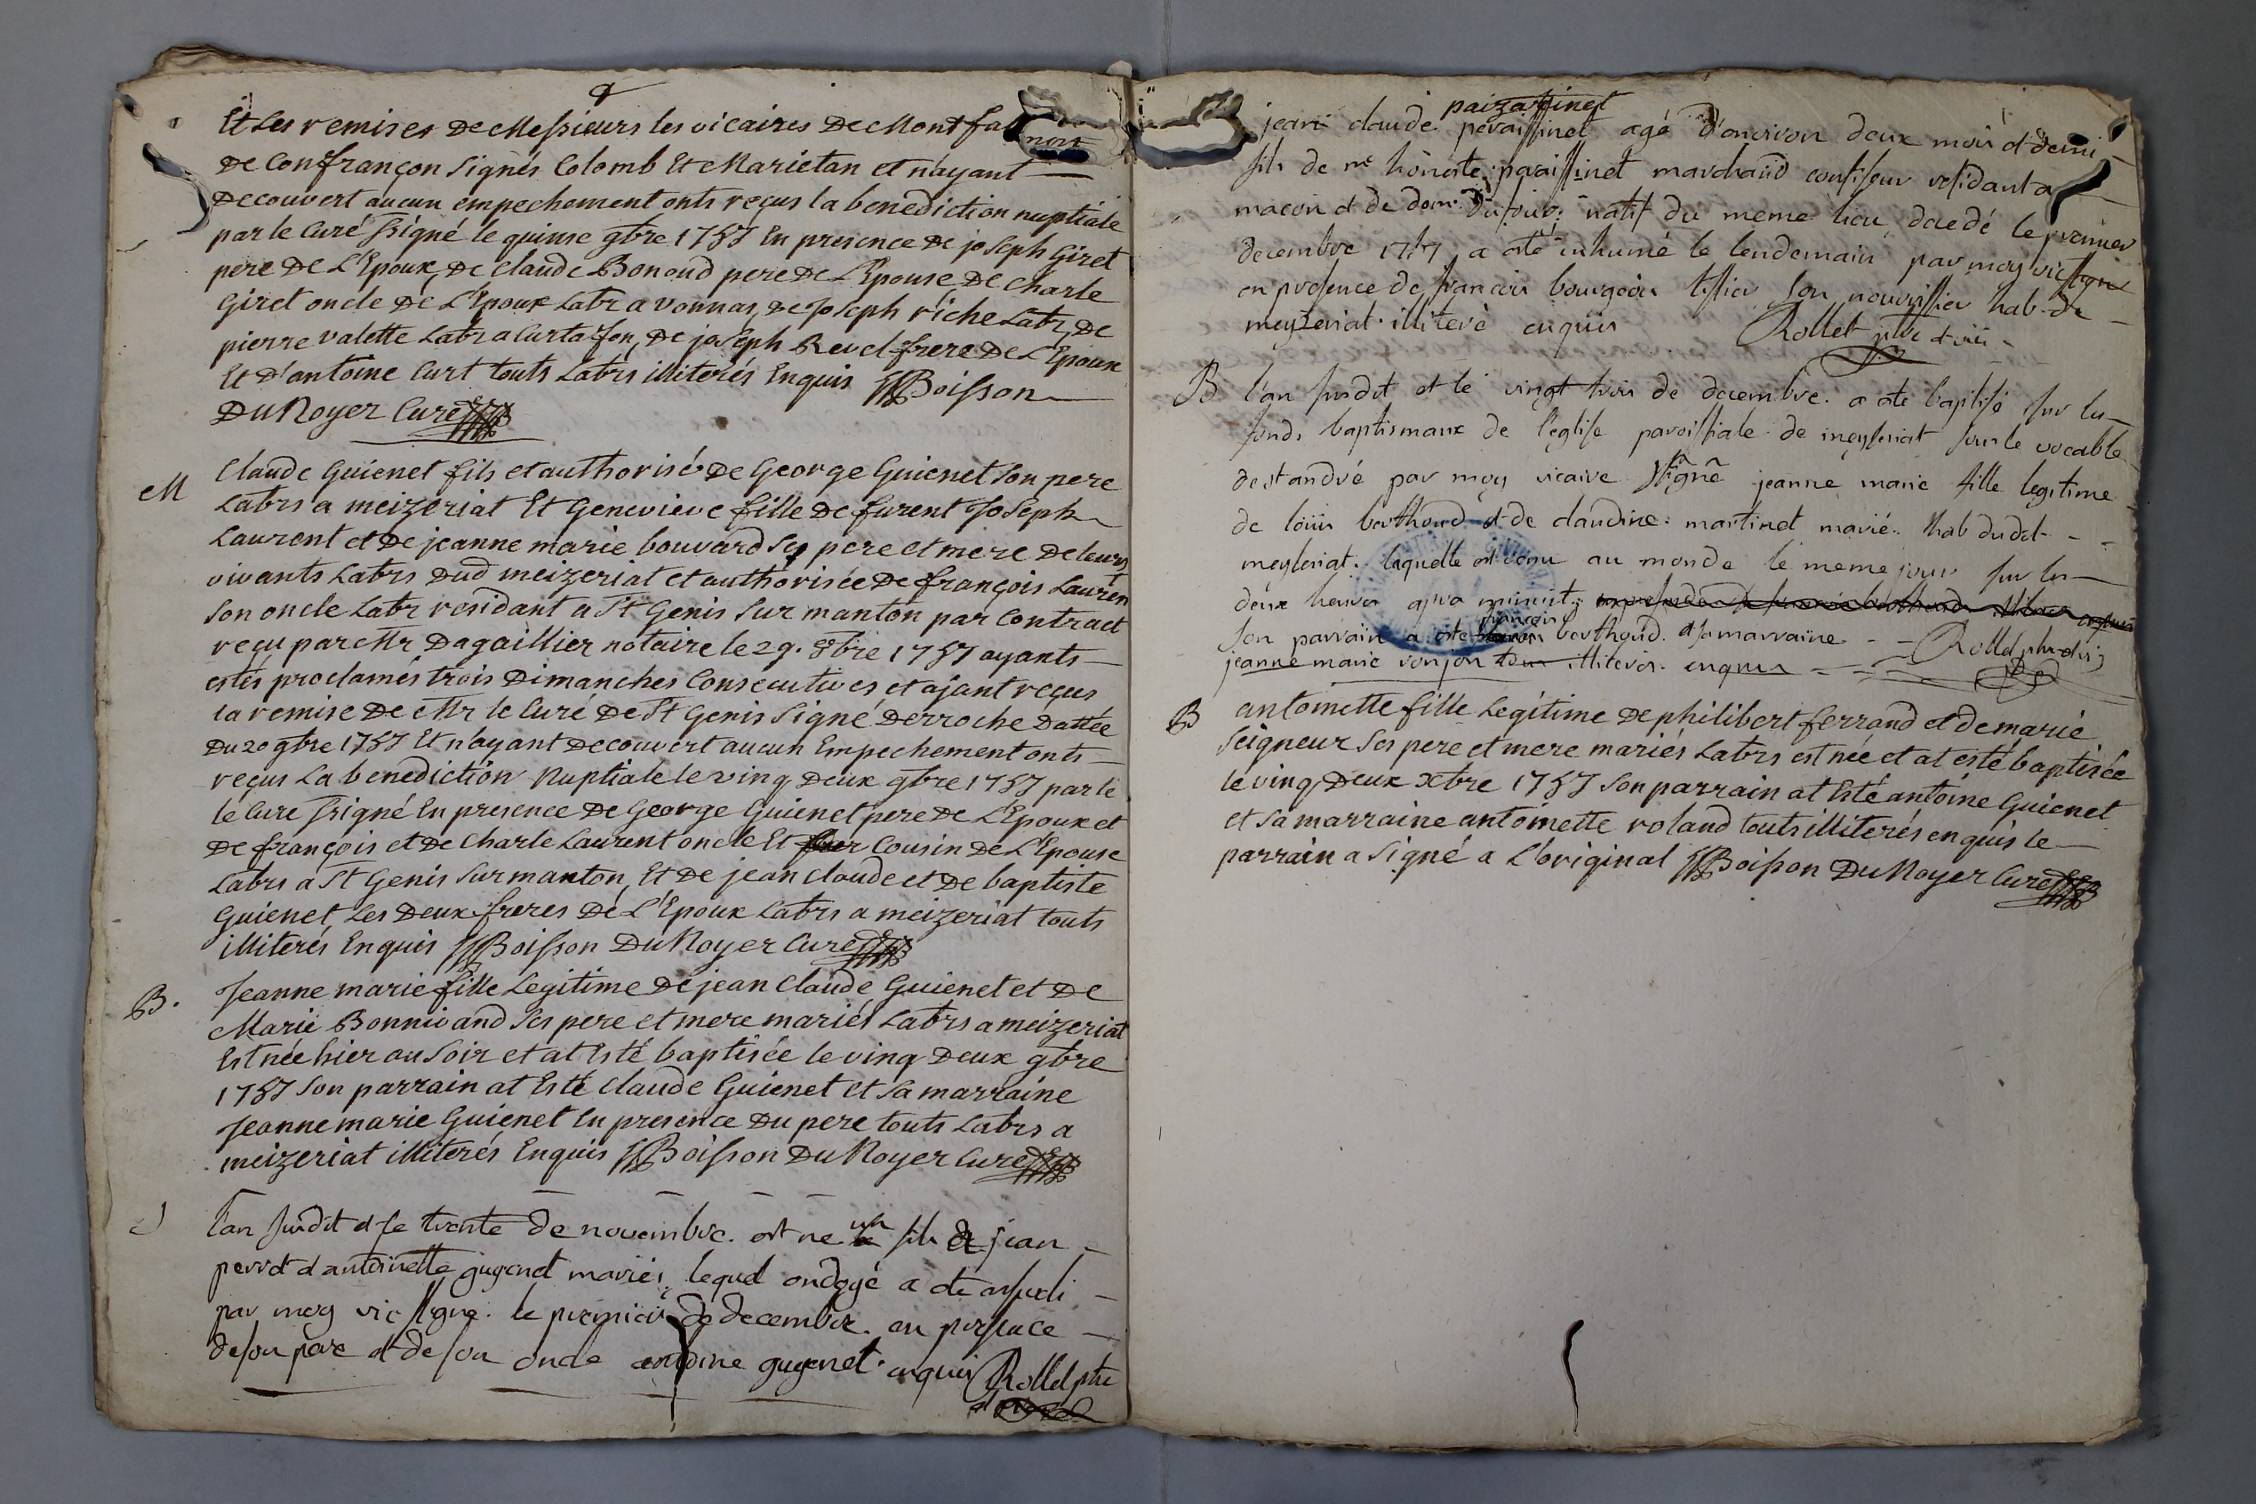 Et Les remises De Messieurs les vicaires De Mont fa
De Confrançon Signés Colomb Et Marietan et n'ayant
Decouvert aucun empechement onts reçus la benediction nuptiale
par le Curé Ssigné le quinse 9bre 1757 En presence De joseph Giret
pere De L'Epoux, De Claude Bonoud pere De L'Epouse De Charle
Giret oncle De L'Epoux Labr a vonnas, De joseph riche Labr, De
pierre valette Labr a Curtafon, De joseph Revel frere De L'Epoux
Et D'antoine Curt touts Labrs illiterés Enquis Boisson
Du Noyer Curé
M Claude Guienet fils et authorisé De George Guienet Son pere
Labrs a meizeriat Et Genevieve fille De furent Joseph
Laurent et De jeanne marie bouvard Ses pere et mere De leurs
vivants Labrs Dud meizeriat et authorisée De françois Lauren
Son oncle Labr residant a St Genis Sur manton par Contract
reçu par Mr Dagaillier notaire le 29. 8bre 1757 ayants
estés proclamés trois Dimanches Consecutives et ajant reçus
la remise De Mr le Curé De St Genis Signé Derroche Dattée
Du 20 9bre 1757 Et n'ayant Decouvert aucun Empechement onts
reçus La benediction Nuptiale le ving Deux 9bre 1757 par le
le Cure Ssigné En presence De George Guienet pere De L'Epoux et
De françois et De Charle Laurent oncle Et Cousin De L'Epouse
Labrs a St Genis Sur manton, Et De jean Claude et De baptiste
Guienet Les Deux freres De L'Epoux Labrs a meizeriat touts
illiterés Enquis Boisson Du Noyer Curé
B. Jeanne marie fille Legitime De jean Claude Guienet et De
Marie Bonnivand Ses pere et mere mariés Labrs a meizeriat
Est née hier au Soir et at Esté baptisée le ving Deux 9bre
1757 Son parrain at Esté Claude Guienet Et Sa marraine
Jeanne marie Guienet En presence Du pere touts Labrs a
meizeriat illiterés Enquis Boisson Du Noyer Curé
l'an susdit et le trente de novembre. est ne un fils de jean
perret d antoinette guyenet mariés, lequel ondoyé a ete enseveli
par moy vic ssigné. le premier de decembre. en presence
de son père et de son oncle antoine guyenet. enquis Rollet ptre
et vic
paizassinet
jean claude perassinet agé d'environ deux mois et demi
fils de mr honorte peraissinet marchand confiseur residant a
macon et de dame Dufour. natif du meme lieu, decedé le premier
decembre 1757 a été inhumé le lendemain par moy vic ssigné
en presence de francois bourgeois tissier son nourrissier hab. de
meyzeriat. illiteré enquis Rollet ptre et vic
B l'an susdit et le vingt trois de decembre. a ete baptisé sur les
fonds baptismaux de l'eglise paroissiale de meyseriat sous le vocable
de st andré par moy vicaire ssigné jeanne marie fille legitime
de loüis berthoud et de claudine martinet mariés hab dudt
meyseriat. laquelle est venu au monde le meme jour sur les
deux heures apra minuit.
françois
son parrain a ete berthoud. et sa marraine Rollet ptre et vic
jeanne marie vonjon illiterés. enquis
B antoinette fille Legitime De philibert ferrand et de marie
Seigneur Ses pere et mere mariés Labrs est née et at esté baptisée
le ving Deux Xbre 1757 Son parrain at Esté antoine Guienet
et Sa marraine antoinette roland touts illiterés enquis le
parrain a Signé a L'original Boisson Du Noyer Curé